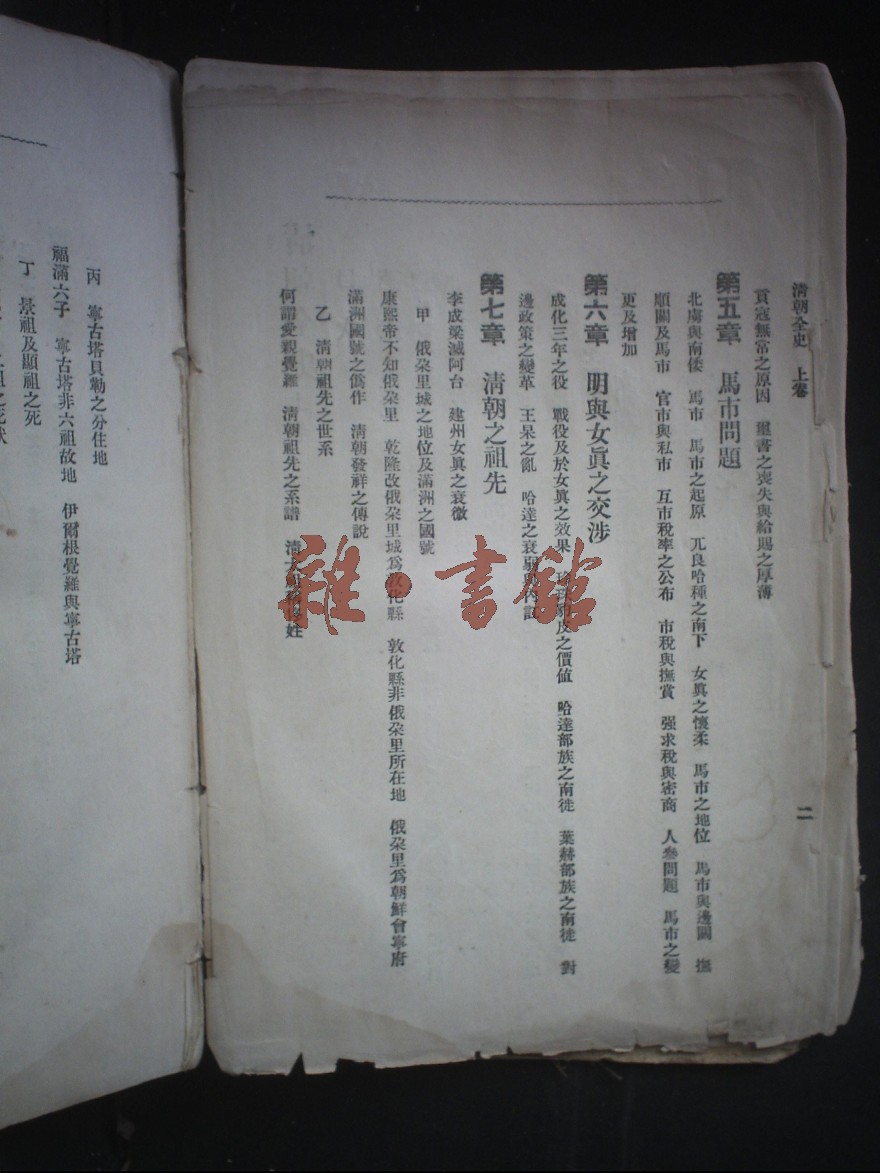 清朝全史　上卷
二
貢寇無常之原因　璽書之喪失與給賜之厚薄
第五章　馬市問題
北虜與南倭　馬市　馬市之起原　兀良哈種之南下　女眞之懷柔　馬市之地位　馬市與邊關　撫
順關及馬市　官市與私市　互市稅率之公布　市稅與撫賞　强求稅與密商　人參問題　馬市之變
更及增加
第六章　明與女眞之交涉
成化三年之役　戰役及於女眞之效果　皮之價値　哈達部族之南徙　葉赫部族之南徙　對
邊政策之變革　王杲之亂　哈達之衰弱與內訌
第七章　清朝之祖先
李成梁滅阿台　建州女眞之衰微
甲　俄朶里城之地位及滿洲之國號
康熙帝不知俄朶里　乾隆改俄朶里城爲敦化縣　敦化縣非俄朶里所在地　俄朶里爲朝鮮會寧府
滿洲國號之僞作　清朝發祥之傳說
乙　清朝祖先之世系
何謂愛親覺羅　清朝祖先之系譜　清太祖姓
丙　寧古塔貝勒之分住地
福滿六子　寧古塔非六祖故地　伊爾根覺羅與寧古塔
丁　景祖及顯祖之死
二祖之死狀
雜·書館